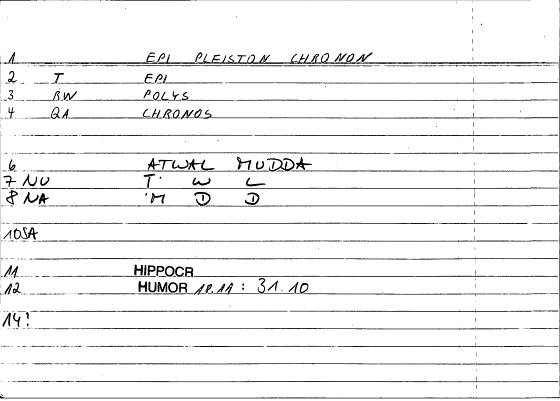 1 EPI PLEISTON CHRONON
2 T EPI
3 BW POLYS
4 QA CHRONOS
6 ATWAL MUDDA
7 NU T W L
8 NA M D D
10SA
11 HIPPOCR
12 HUMOR 10.11 : 31.10
14!